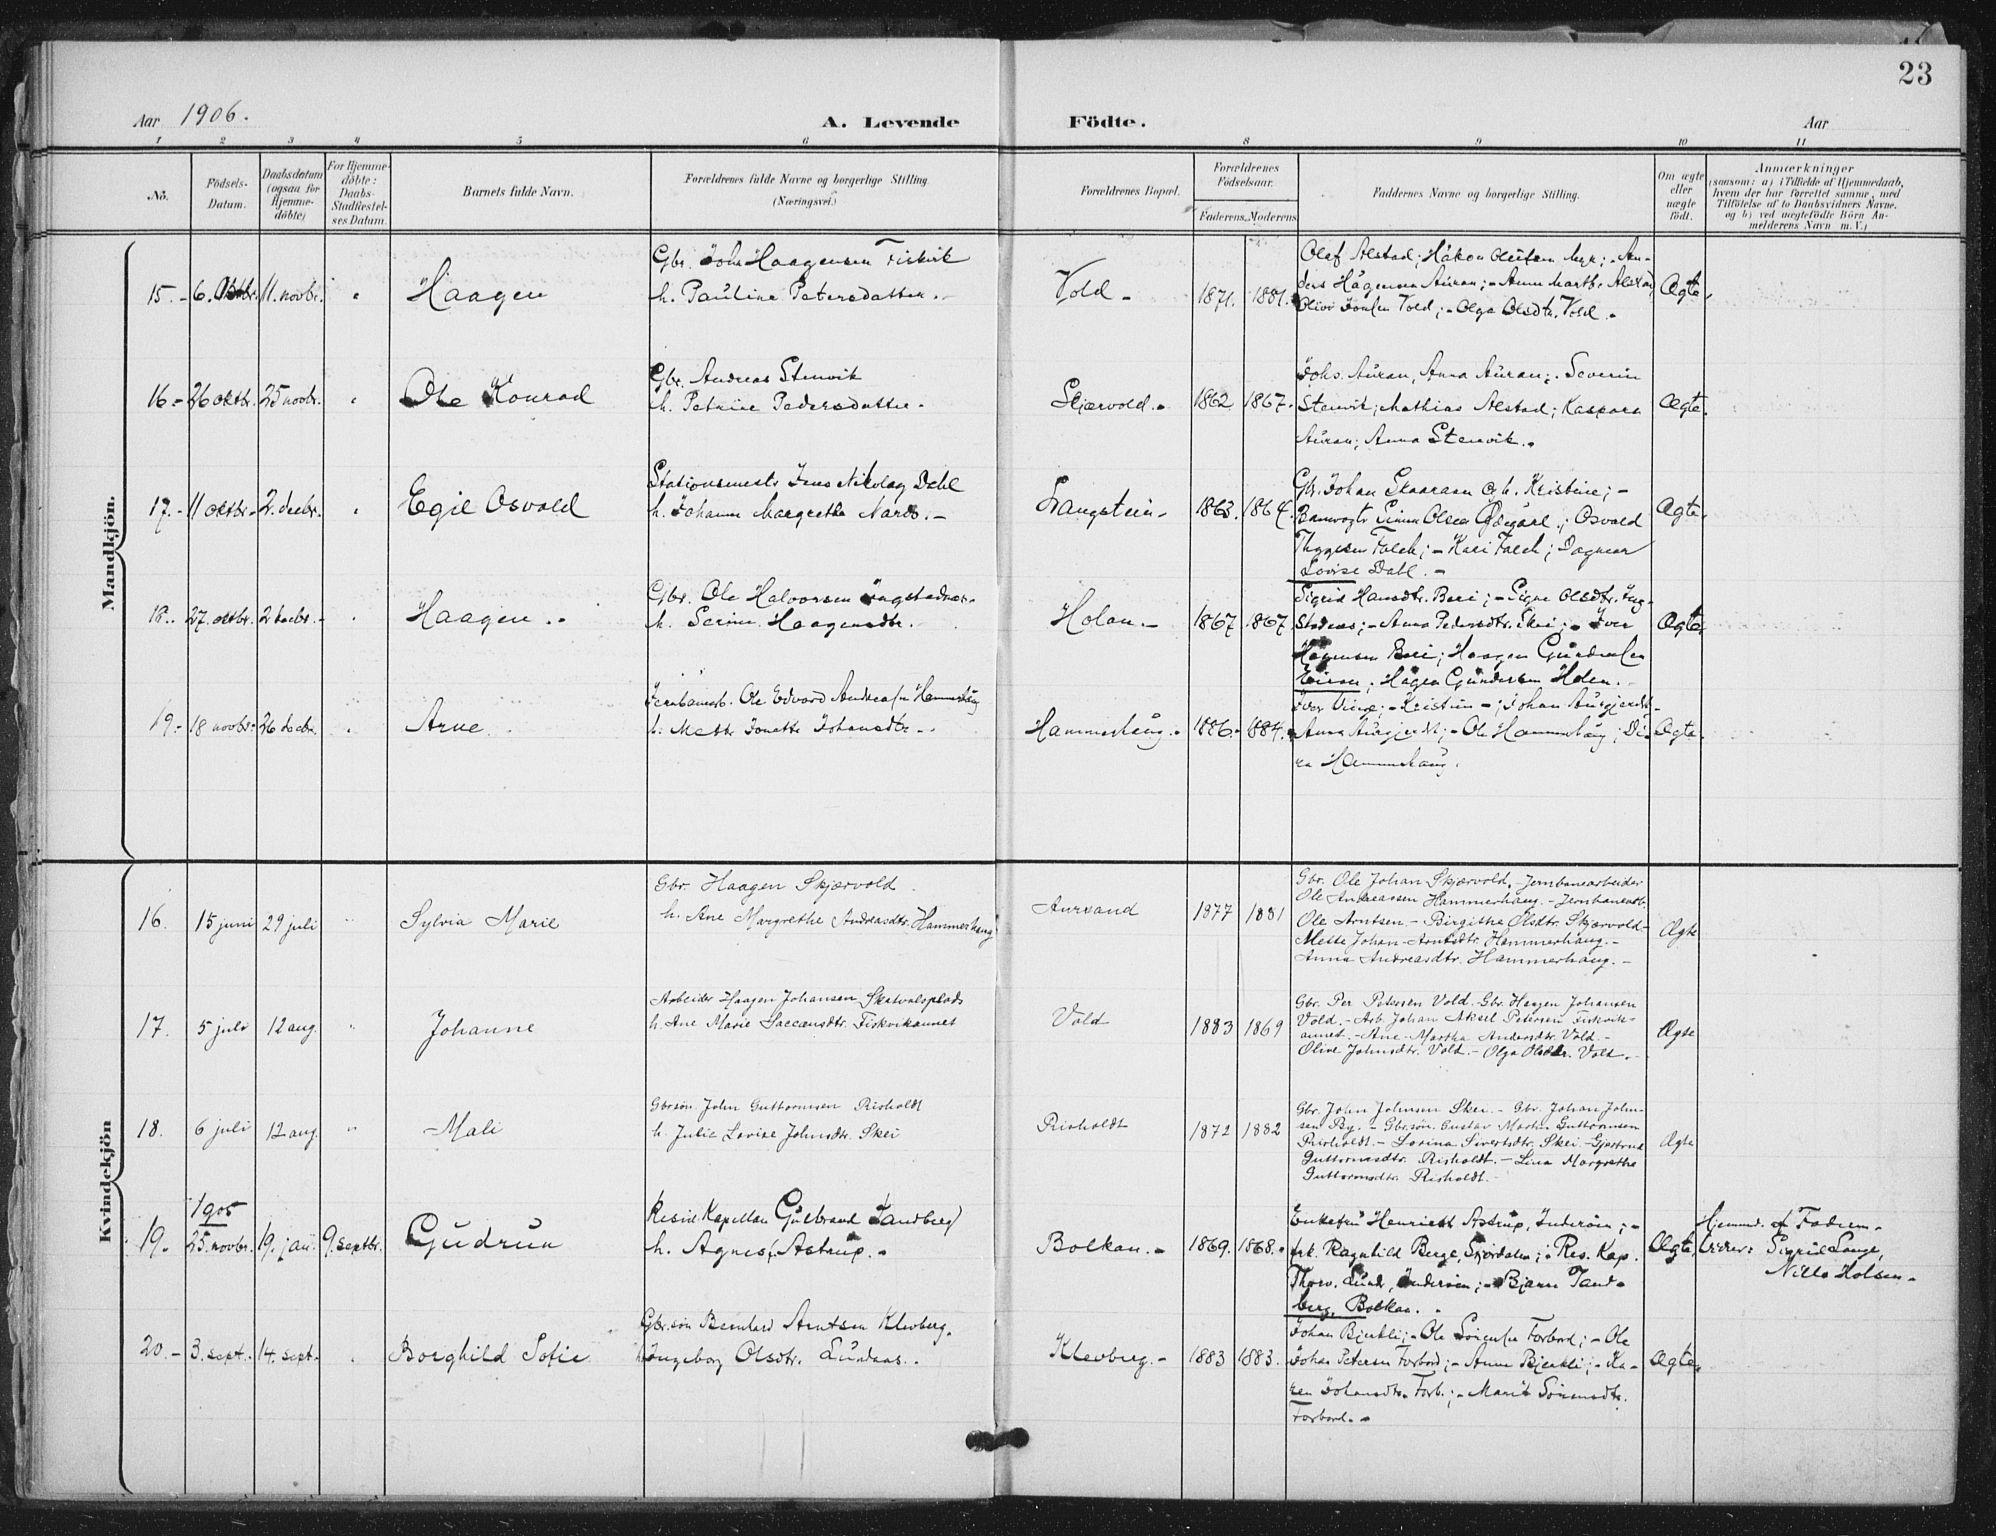 23
Aar 1906.
A. Levende Födte.
Aar
1 2 3 4 5 6 8 9 10 11
No.
Födsels-Datum.
Daabsdatum (ogsaa for Hjemme-döbte)
For Hjemme-döbte: Daabs-Stadfæstel-ses Datum.
Barnets fulde Navn.
Forældrenes fulde Navne og borgerlige Stilling. (Næringsvei.)
Forældrenes Bopæl.
Forældrenes Födselsaar.
Faderens. Moderens.
Faddernes Navne og borgerlige Stilling.
Om ægte eller uægte födt.
Anmærkninger
(saasom: a) i Tilfælde af Hjemmedaab,
hvem der har forrettet samme, med
Tilföielse af to Daabsvidners Navne.
og b) ved uægtefödte Börn An-
melderens Navn m. V.)
Mandkjön.
15. - 6. Oktbr. 11. novbr. " Haagen
Gbr. Johs Haagensen Fiskvik
h. Pauline Petersdatter. -
Vold - 1871. 1881.
Olaf Alstad; Håkon Olufsen Myr; - An-
ders Hågensen Auran; - Anna Marth. Alstad
Olive Jonsen Vold; - Olga Olsdtr. Vold. -
Ægte.
16. - 26 oktbr. 25 novbr. " Ole Konrad
Gbr. Andreas Stenvik
h. Petrine Pedersdatter -
Skjærvold. - 1862 1867.
Johs. Auran, Anna Auran; Severin
Stenvik; Mathias Alstad; Kaspara
Auran; Anna Stenvik. -
Ægte.
17. - 11 oktbr - 2. decbr. " Egil Osvald
Stationsmestr Jens Nikolay Dahl
h. Johanna Margrethe Nards. -
Langstein - 1863. 1864.
Gbr. Johan Skaaraan og h. Kristine; -
Banevogtr Simon Olsen Ødegård.; Osvald
Thygesen Falch; - Kari Falch; Dagmar
Lovise Dahl. -
Ægte.
18. 27. oktbr. 26 decbr. - " Haagen. .
Gbr. Ole Halvorsen Ingstadnes.
h. Serine Haagensdtr.
Holan. - 1867 1867.
Sigrid Hansdtr. Beri; - Signe Olsdtr. Ing-
stadnes; - Anna Pedersdtr. Skei; - Iver
Hågensen Beri; Haagen Gundersen
Eiran; Hågen Gundersen Holan. -
Ægte
19. - 18 novbr. 26 decbr. " Arne
Jernbanearb. Ole Edvard Andreasen Hammerhaug
h. Mette Jonette Johansdtr -
Hammerhaug. - 1886. 1884.
Iver Vinge; - Kristine -; Johan Aurgjerdet -
Anna Aurgjerdet; - Ole Hammerhaug; Di-
na Hammerhaug.
Ægte.
Kvindekjön
16. 15 juni 29 juli " Sylvia Marie
Gbr. Haagen Skjærvold.
h. Ane Margrethe Andreasdtr. Hammerhaug
Aursand 1877 1881
Gbr. Ole Johan Skjærvold. - Jernbanearbeider
Ole Andreassen Hammerhaug. - Jernbanearb.
Ole Arntsen - Birgitha Olsdtr. Skjærvold -
Mette Johan - Arntsdtr. Hammerhaug. -
Anna Andreasdtr. Hammerhaug. -
Ægte
17. 5 juli 12 aug. " Johanne
Arbeider Haagen Johansen Skatvalsplads
h. Ane Marie Isacsensdtr. Fiskvikaunet
Vold 1883 1869
Gbr. Per Petersen Vold. Gbr. Haagen Johansen
Vold. - Arb. Johan Aksel Petersen Fiskvik-
aunet. - Ane - Martha Andersdtr. Vold. -
Oline Johnsdtr. Vold. - Olga Olsdtr. Vold. -
Ægte
18. 6 juli 12 aug. " Mali
Gbrsön John Guttormsen Risholdt
h. Julie Lovise Johnsdtr. Skei
Risholdt 1872 1882
Gbr. John Johnsen Skei. - Gbr. Johan John-
sen By. - Gbrsön. Gustav Martin Guttormsen
Risholdt. - Lovina Sivertsdtr. Skei. - Gjertrud
Guttormsdtr. Risholdt. - Lina Margrethe
Guttormsdtr Risholdt. -
Ægte
19. 1905 25. novbr. 19. jan. 9. septbr. Gudrun
Resid. Kapellan Gulbrand Tandberg
h. Agnes f. Astrup. -
Bolkan. - 1869. 1868.
Enkefru Henriett Astrup, Inderöen; -
frk. Ragnhild Berge, Stjördalen; - Res. Kap.
Thorv. Lund, Inderöen; - Bjarne Tand-
berg, Bolkan. .
Ægte.
Hjemmed. af Faderen -
Vidner: Sigrid Lange,
Nills Holsen -
20. - 3. sept. - 14. sept. " Borghild Sofie
Gbr.sön Bernhard Arntsen Klevberg.
h Ingeborg Olsdtr. Lundaas. .
Klevberg. - 1883 1883.
Johan Bjerkli; - Ole Sörensen Forbord; - Ole
Johan Petersen Forbord; - Anna Bjerkli; - Ka-
ren Johansdtr. Forb.; - Marit Sörensdtr.
Forbord. -
Ægte.